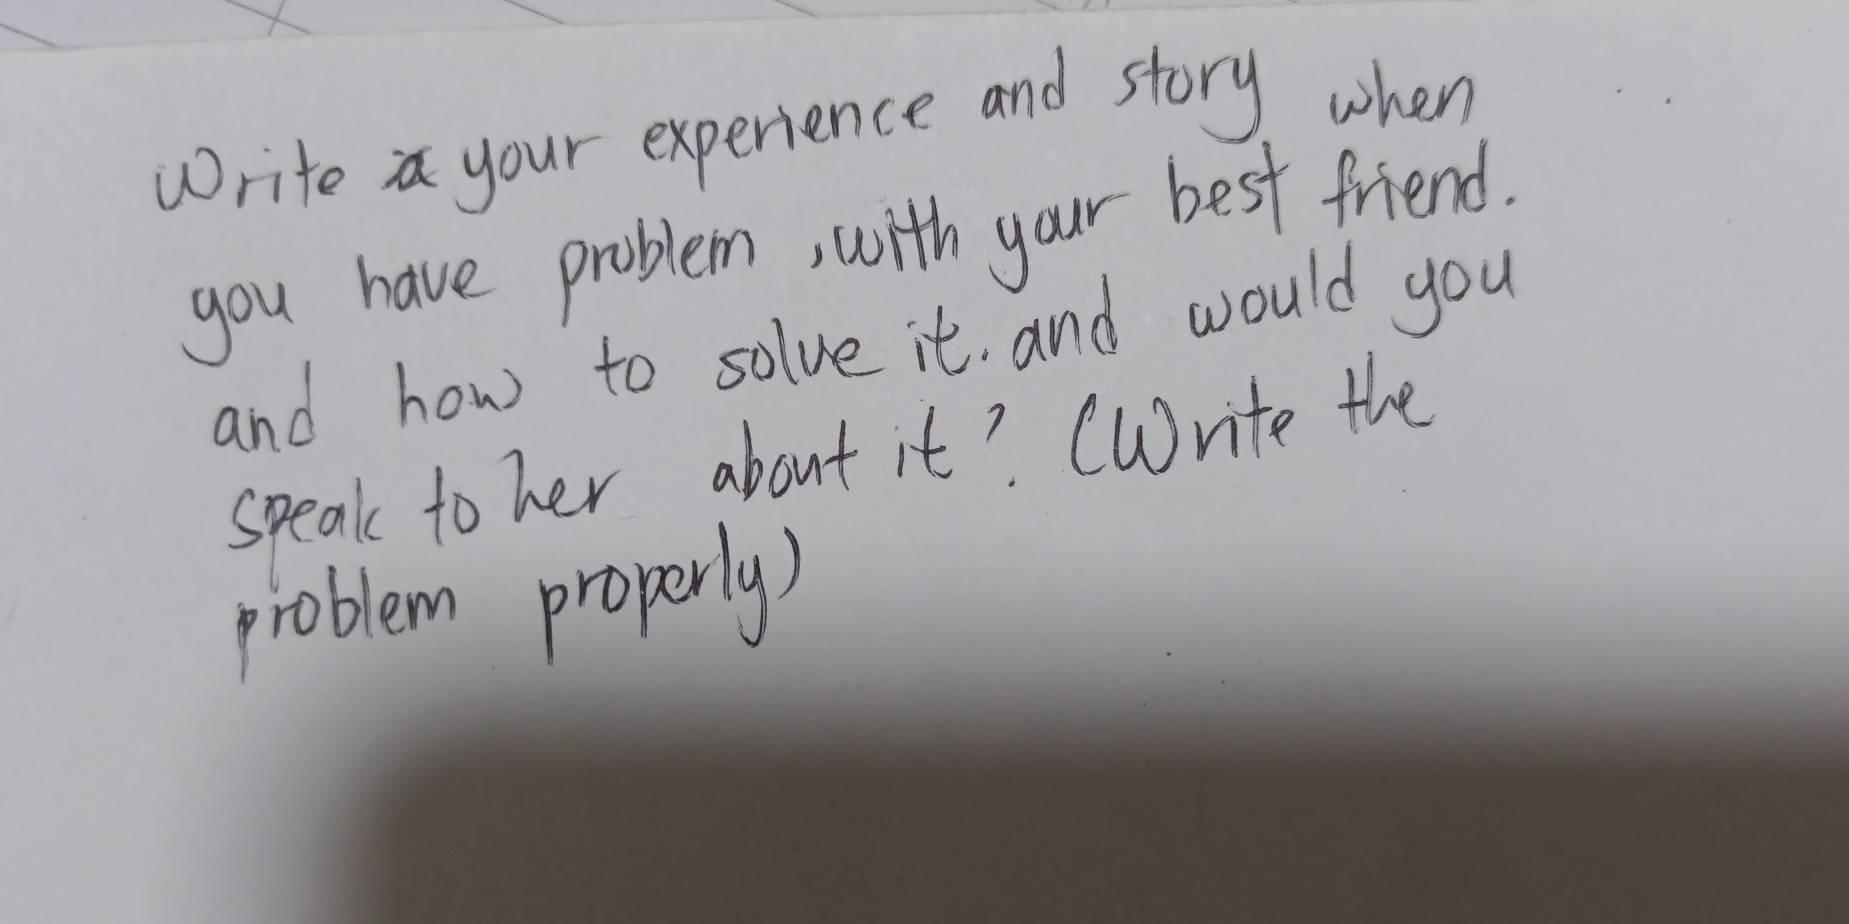 Write your experience and story when
you have problem , with your best friend.
and how to solve it. and would you
speak to her about it? (Write the
problem properly)